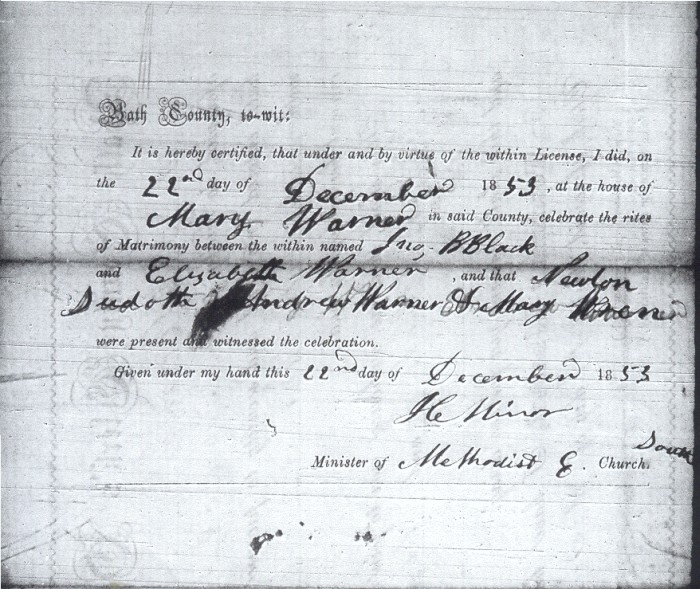 Bath County, to-wit:
It is hereby certified, that under and by virtue of the within License, I did, on
the 22nd day of December 1853, at the house of
Mary Warner in said County, celebrate the rites
of Matrimony between the within named Jno. B Black
and Elizabeth Warner, and that Newton
Sudoth Andrew Warner & Mary Warner
were present and witnessed the celebration.
Given under my hand this 22nd day of December 1853
Minor
Minister of Methodist E. Church. South